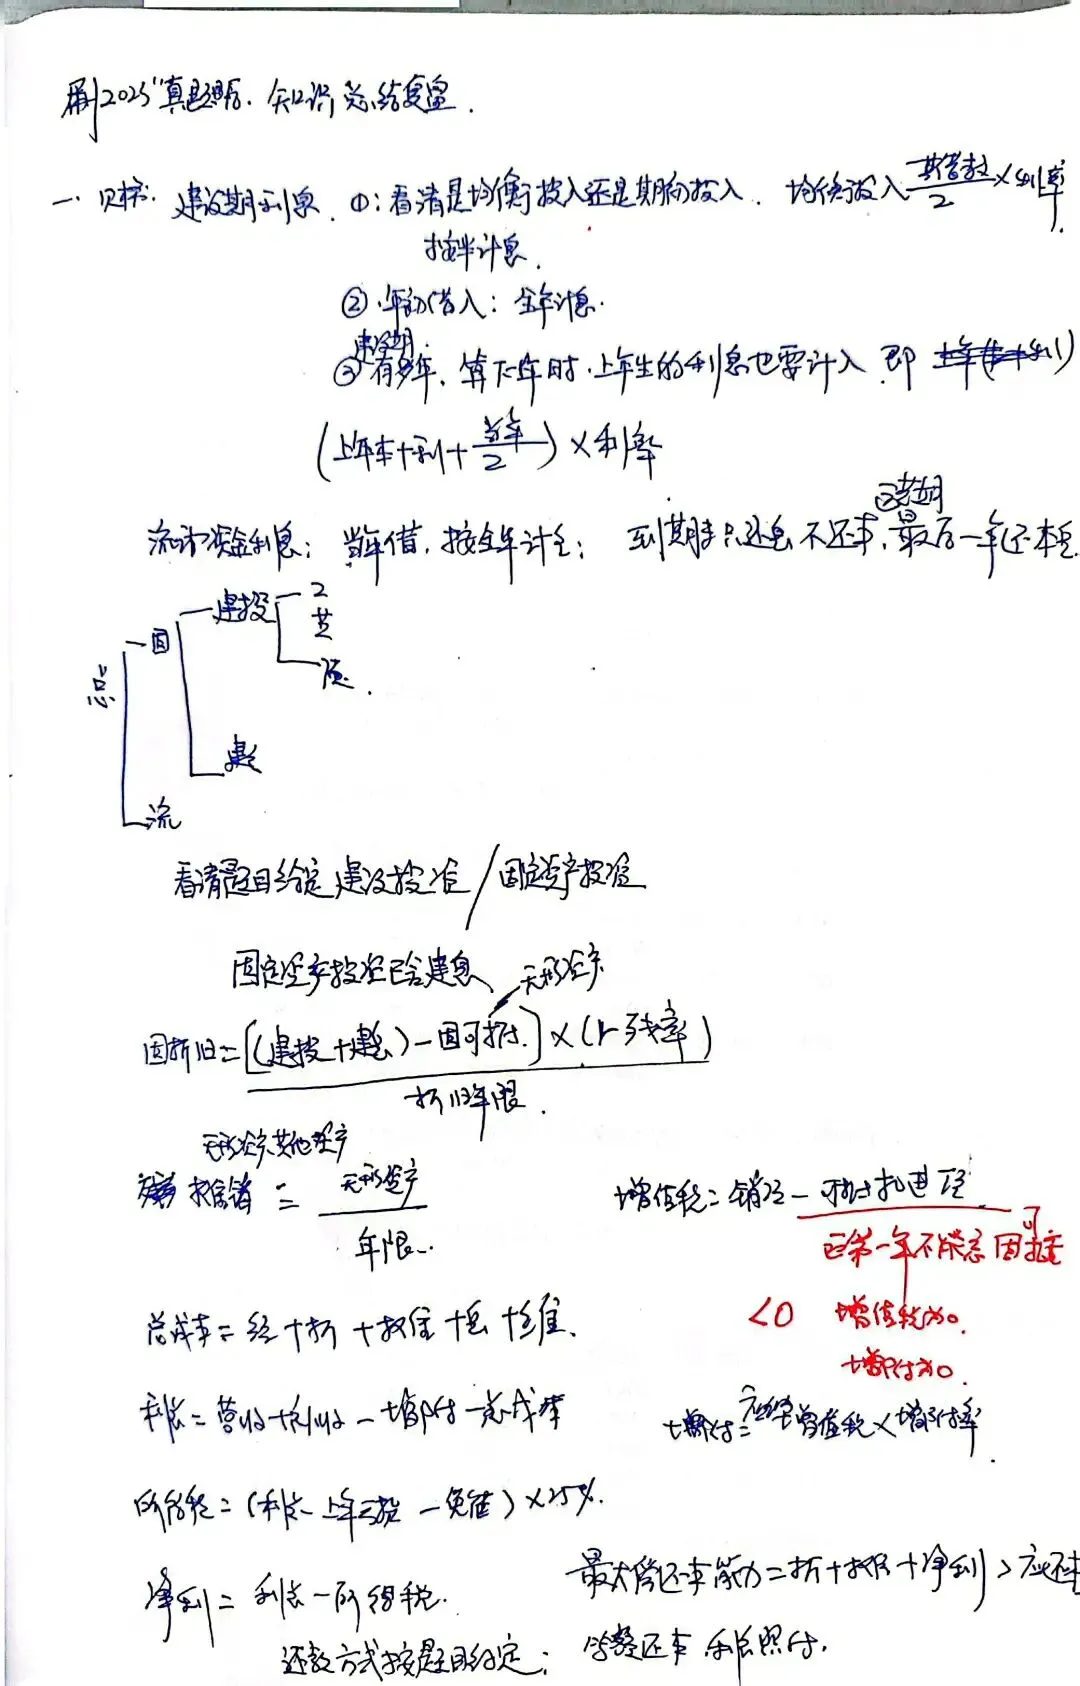 刷2025真题后.知识总结复盘.
一. 财标: 建设期利息. ①:看清是均衡投入还是期初投入. 均衡投入 本借款/2×利率.
按半计息.
②.年初借入: 全年计息.
建设期
③有多年. 算下年时.上年生的利息也要计入. 即
(上年本+利+当年/2)×利率
流动资金利息: 当年借. 按全年计息; 到期末只还息不还本, 最后一年还本
总
固
建投
工
艺
预.
建息
流
看清题目给定建设投资/固定资产投资
固定资产投资已含建息、无形资产
固折旧=[(建投+建息)-固可抵.]×(1-残率)
折旧年限.
无形资产、其他资产
摊销 = 无形资产/年限..
增值税=销项-可抵扣进项
第一年不能忘固可抵
<0 增值税为0.
增附为0.
总成本=经+折+摊+息+维.
利总=营收+补收-增附-总成本
增附=应纳增值税×增附率.
所得税=(利总-上年亏损-免征)×25%.
净利=利总-所得税.
最大偿还本能力=折+摊+净利>应还本
还款方式按题目约定: 等额还本.利息照付.